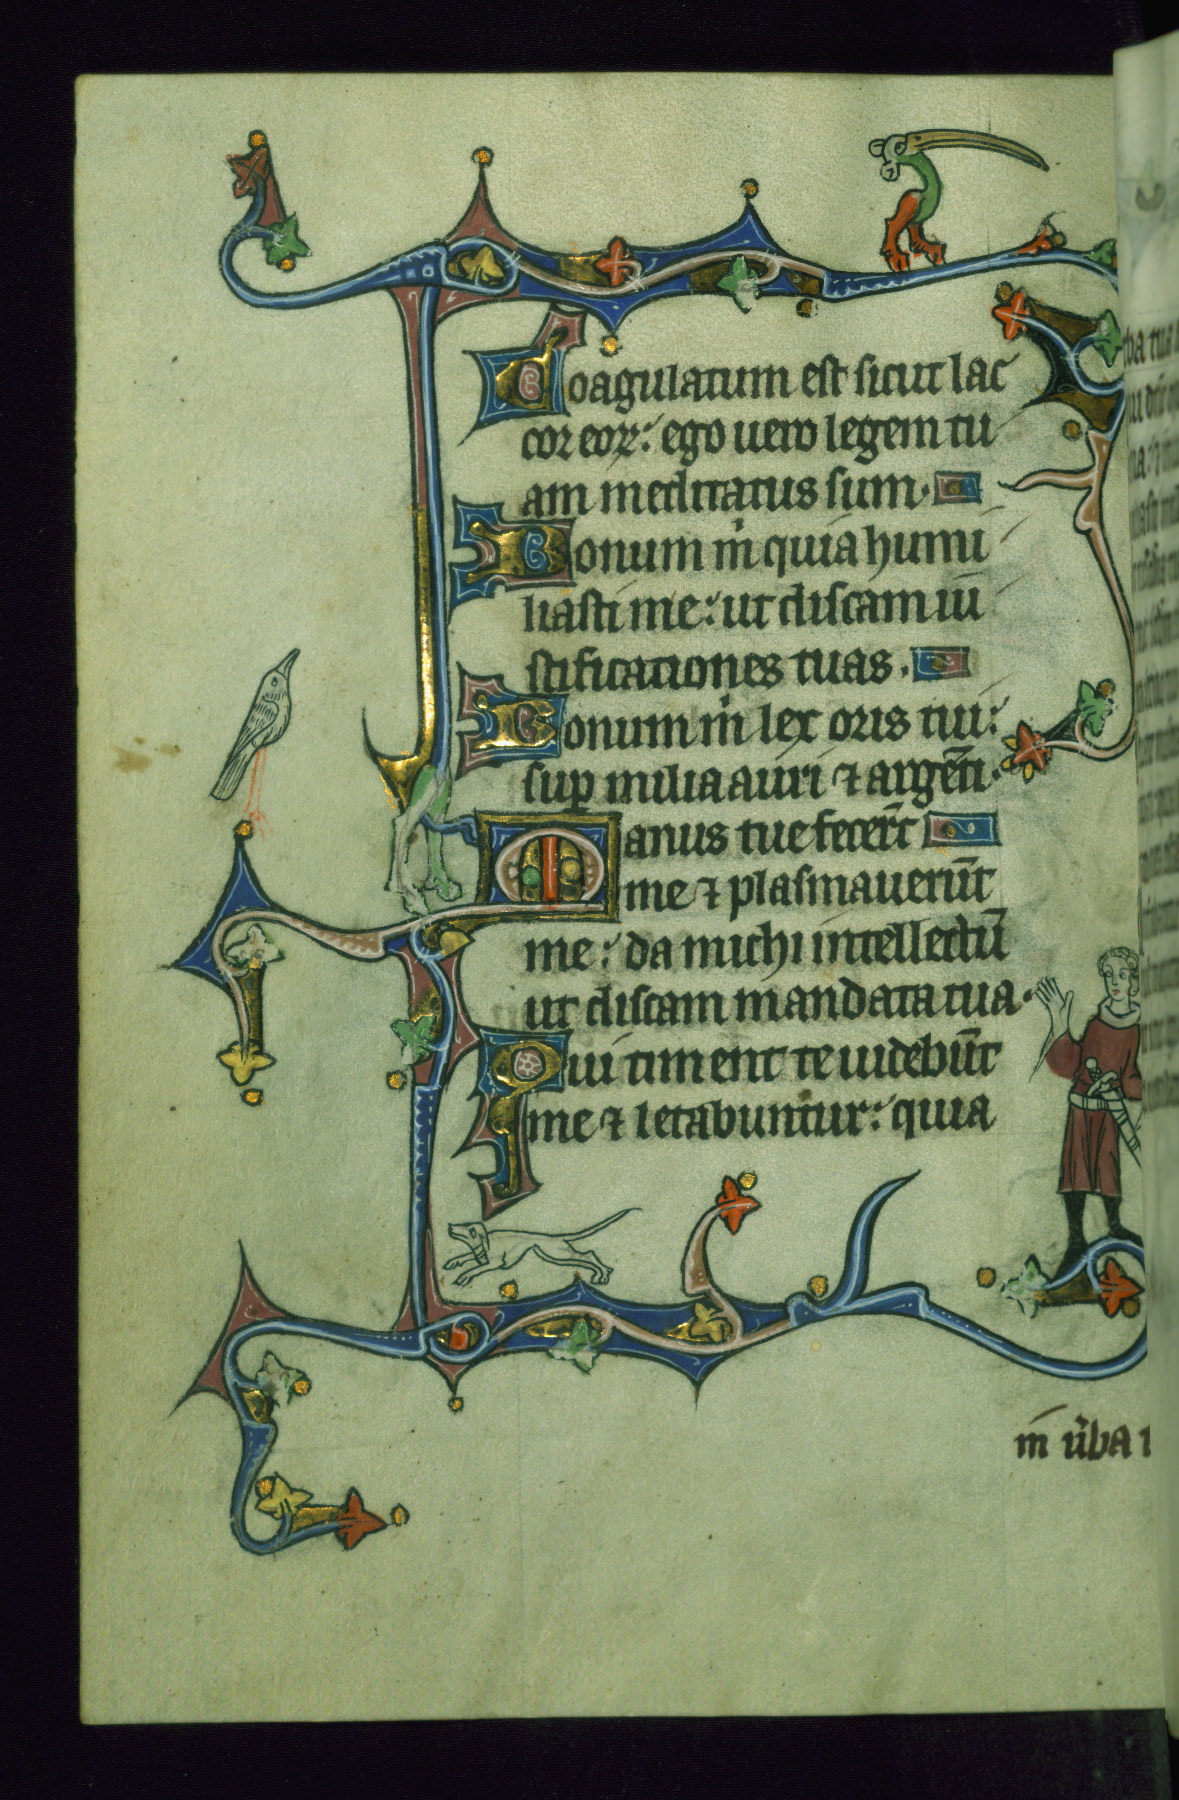 Coagulatum est sicut lac
cor eoꝝ: ego uero legem tu
am meditatus sum.
Bonum m̄ quia humi
liasti me: ut discam iu
stificationes tuas.
Bonum m̄ lex oris tui:
suꝑ milia auri ⁊ argēti.
Manus tue fecer̄t
me ⁊ plasmauerūt
me: da michi intellectū
ut discam mandata tua.
Qui timent te uidebūt
me ⁊ letabuntur: quia
m̄ ūba